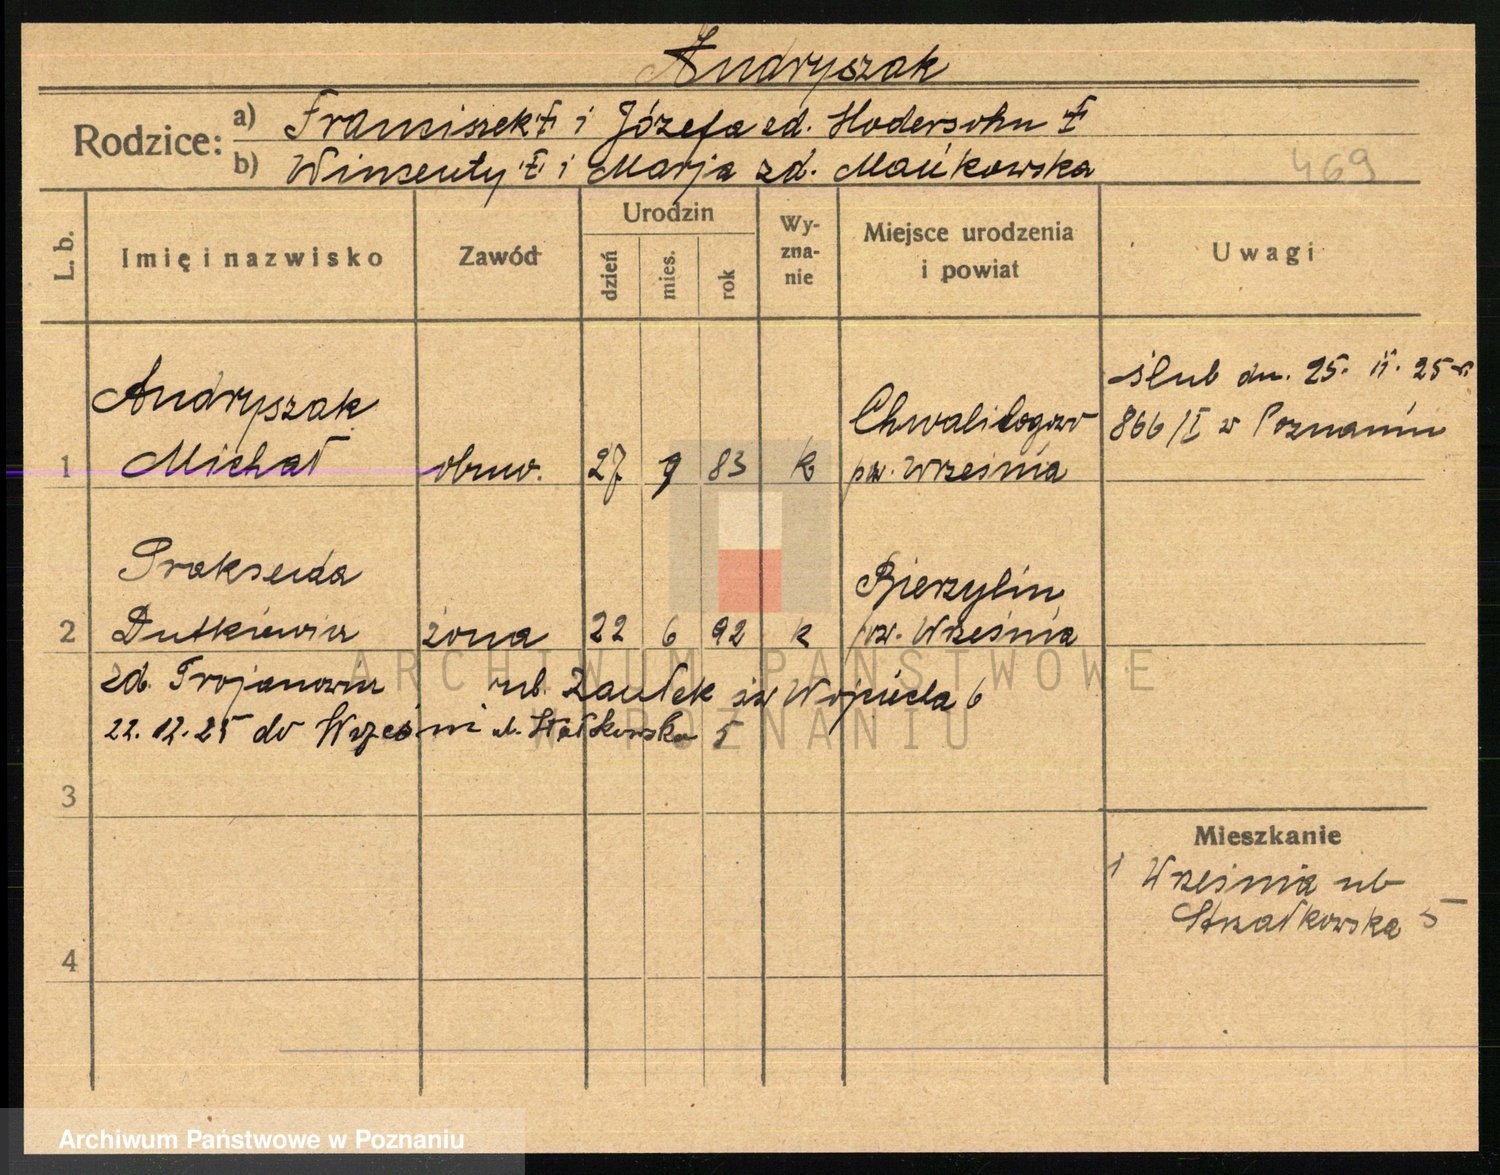 Andryszak
Rodzice:
a) Franciszek † i Józefa zd. Hodersohn †
b) Winsenty † i Marja zd. Mańkowska
469
L. b.
Imię i nazwisko
Zawód
Urodzin
dzień
mies.
rok
Wy-
zna-
nie
Miejsce urodzenia
i powiat
Uwagi
Andryszak
1 Michał obuw. 27 9 83 k
Chwalibogowo
pow. Września
ślub dn. 25. II. 25 r
866/I w Poznaniu
Prakseda
2 Dutkiewicz żona 22 6 92 k
Bierzylin
pow. Września
zd. Trojanowicz Zaułek św Wojciecha 6
22. 12. 25 do Wrześni ul. Stałkowska 5
3
4
Mieszkanie
1 Września ul
Strzałkowska 5
ARCHIWUM PAŃSTWOWE
W POZNANIU
Archiwum Państwowe w Poznaniu